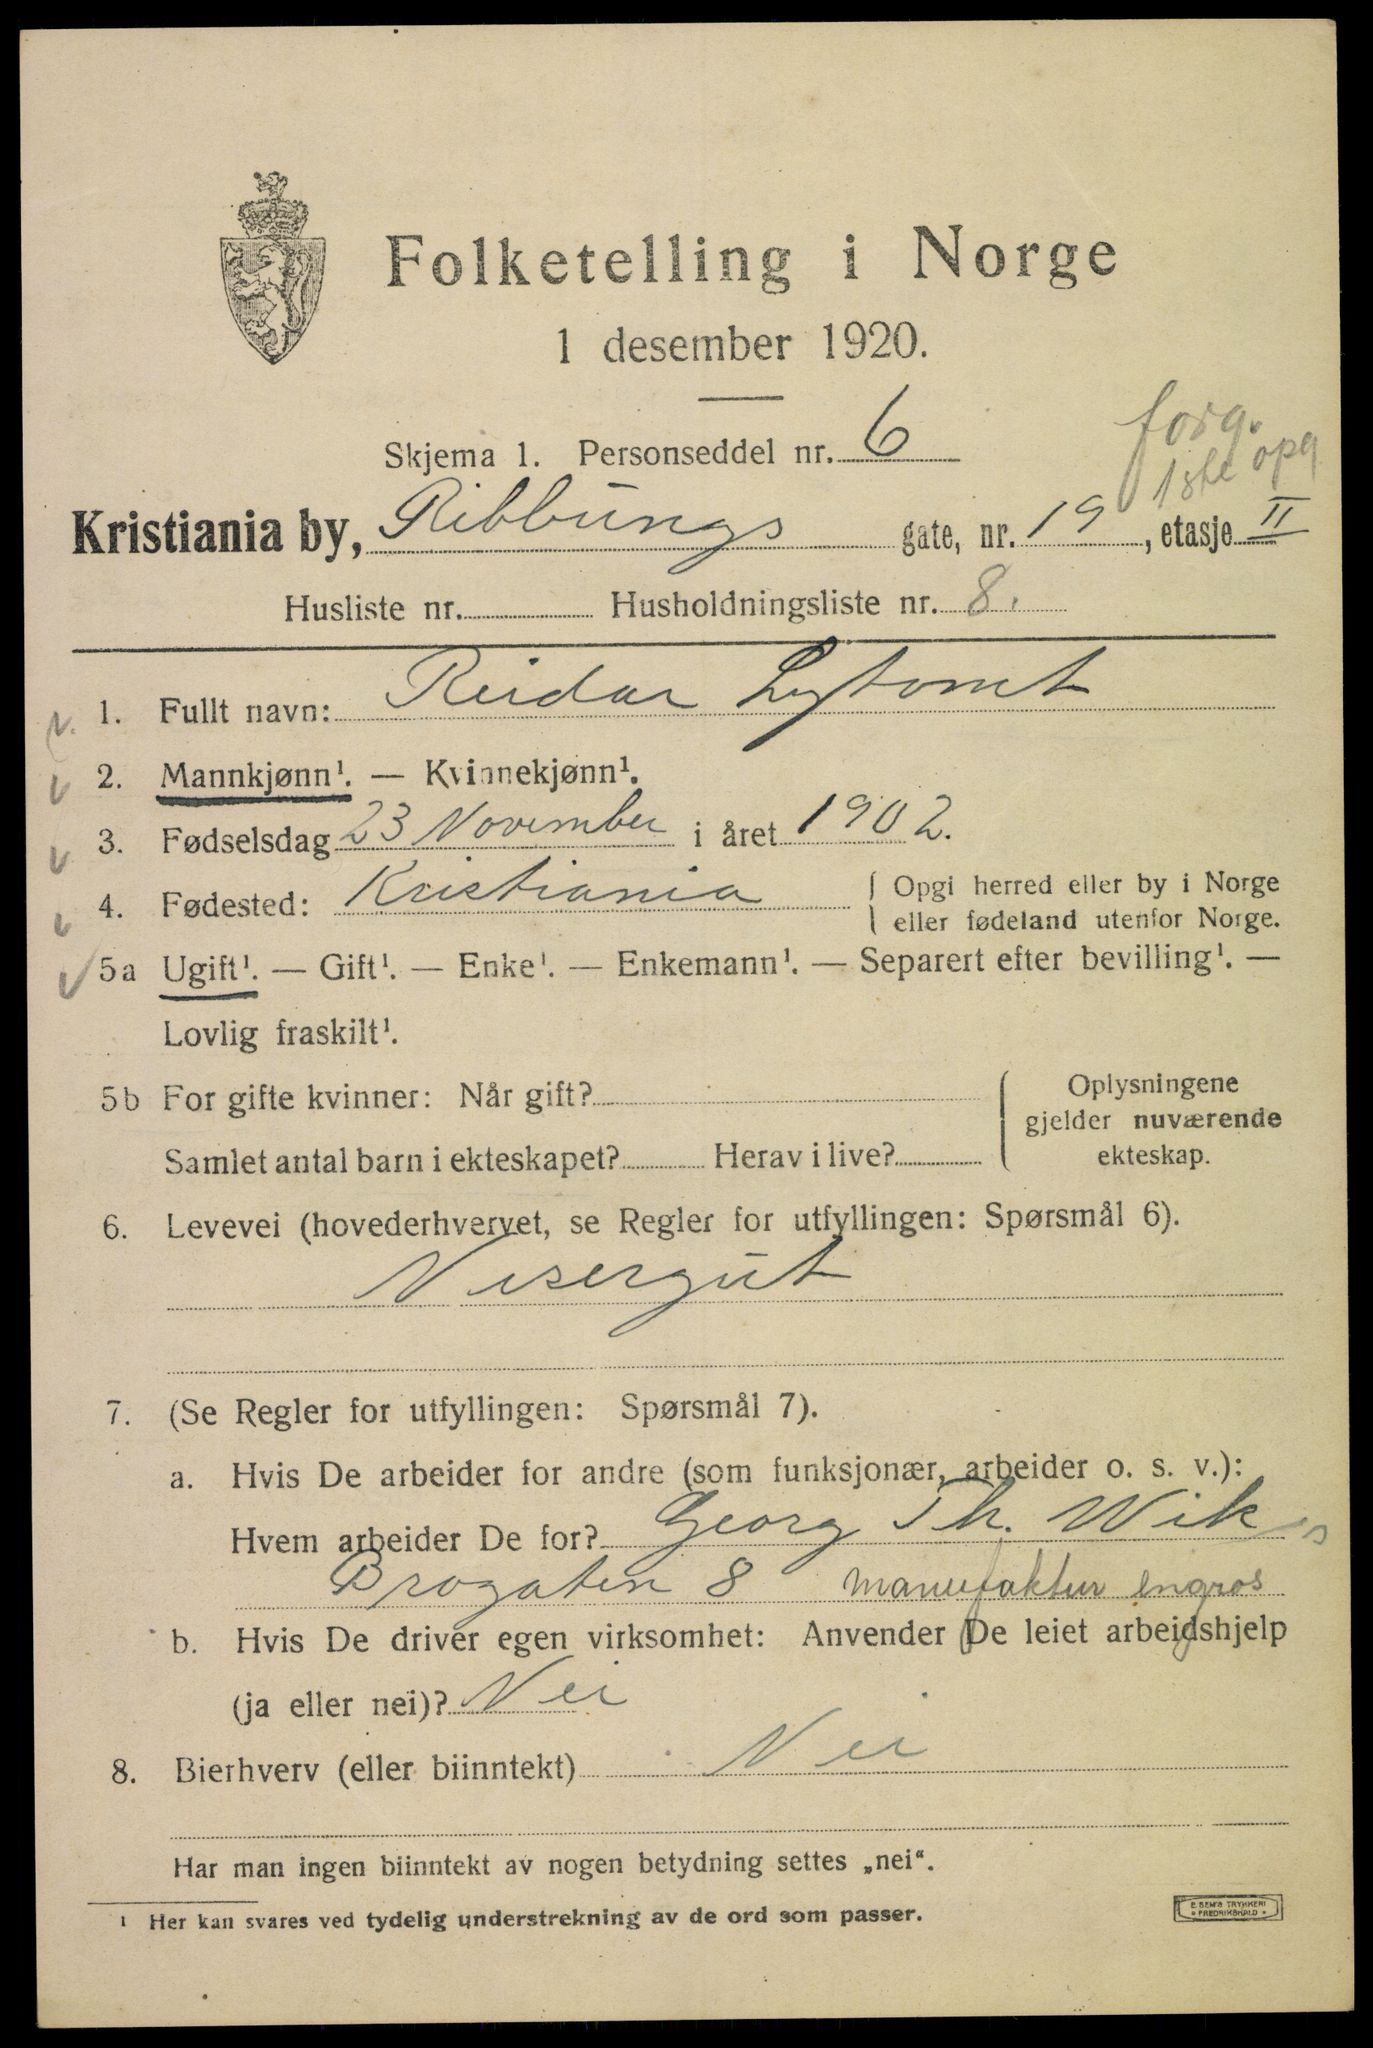 Folketelling i Norge
1 desember 1920.
forg.
1ste opg
Skjema 1. Personseddel nr. 6
Kristiania by, Ribbungs gate, nr. 19, etasje II
Husliste nr. Husholdningsliste nr. 8.
1. Fullt navn: Reidar Lytomt
2. Mannkjønn¹. — Kvinnekjønn¹.
3. Fødselsdag 23 November i året 1902.
4. Fødested: Kristiania { Opgi herred eller by i Norge
eller fødeland utenfor Norge.
5a Ugift¹. — Gift¹. — Enke¹. — Enkemann¹. — Separert efter bevilling¹. —
Lovlig fraskilt¹.
5b For gifte kvinner: Når gift? { Oplysningene
gjelder nuværende
Samlet antal barn i ekteskapet? Herav i live? ekteskap.
6. Levevei (hovederhvervet, se Regler for utfyllingen: Spørsmål 6).
Visergut
7. (Se Regler for utfyllingen: Spørsmål 7).
a. Hvis De arbeider for andre (som funksjonær, arbeider o. s. v.):
Hvem arbeider De for? Georg Th. Wik
Brogaten 8 manufaktur engros
b. Hvis De driver egen virksomhet: Anvender De leiet arbeidshjelp
(ja eller nei)? Nei
8. Bierhverv (eller biinntekt) Nei
Har man ingen biinntekt av nogen betydning settes „nei“.
¹ Her kan svares ved tydelig understrekning av de ord som passer.
E. SEM'S TRYKKERI
• FREDRIKSHALD •